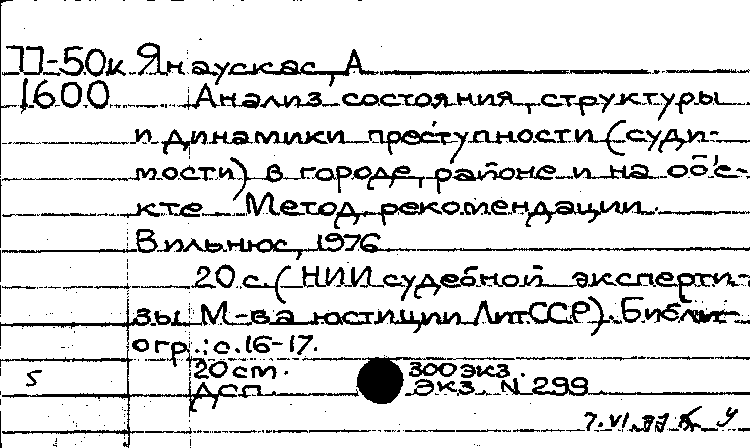 П-50к Янаускас, А
1600 Анализ состояния, структуры
и динамики преступности (суди-
мости) в городе, районе и на объе-
кте. Метод. рекомендации.
Вильнюс, 1976.
20 с. (НИИ судебной эксперти-
зы М-ва юстиции ЛитССР). Библи-
огр.: с. 16-17.
20 см. 300 экз.
5 ДСП. Экз. N 299
7.VI.